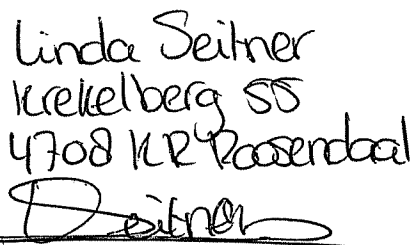 Linda Seitner
Krekelberg 55
4708 KR Roosendaal
Seitner